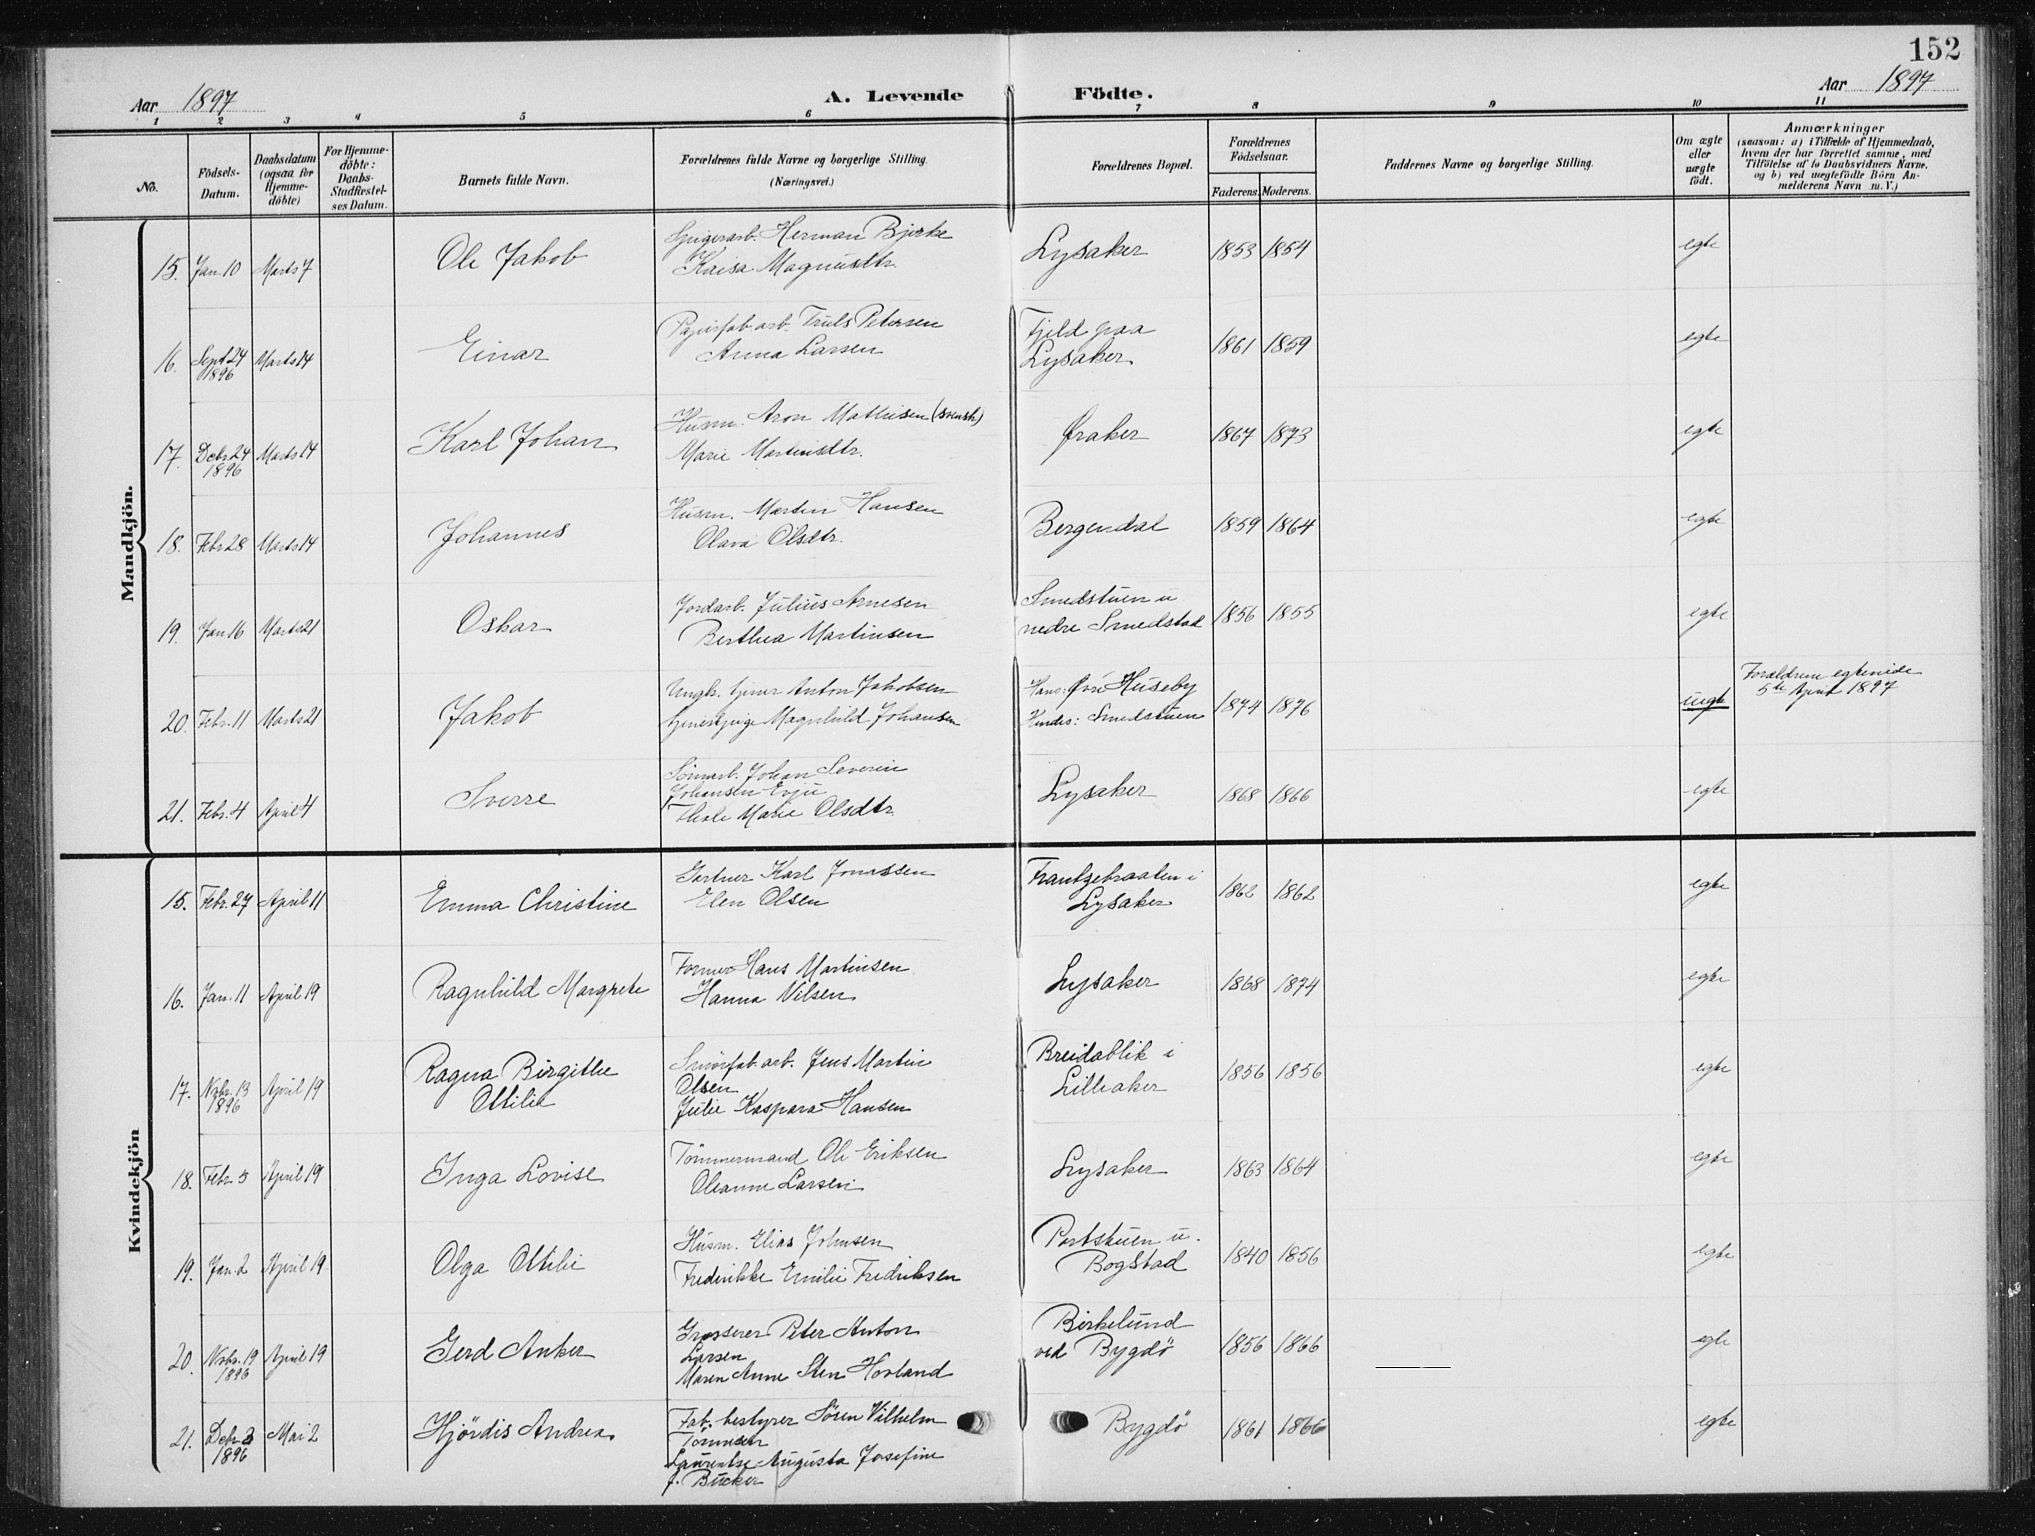 152
Aar 1897 A. Levende Födte. Aar 1897
1 2 3 4 5 6 7 8 9 10 11
No.
Födsels-Datum.
Daabsdatum (ogsaa for Hjemme-döbte)
For Hjemme-döbte: Daabs-Stadfæstel-ses Datum.
Barnets fulde Navn.
Forældrenes fulde Navne og borgerlige Stilling.
(Næringsvei.)
Forældrenes Bopæl.
Forældrenes Födselsaar.
Faderens. Moderens.
Faddernes Navne og borgerlige Stilling.
Om ægte eller uægte födt.
Anmærkninger
(saasom: a) i Tilfælde af Hjemmedaab,
hvem der har forrettet samme, med
Tilföielse af to Daabsvidners Navne.
og b) ved uægtefödte Börn An-
melderens Navn m. V.)
Mandkjön.
15. Jan. 10 Marts 7 Ole Jakob Spigerarb. Herman Bjerke
Kaisa Magnusdtr. Lysaker 1853 1854 egte
16. Sept 24 1896 Marts 14 Einar Papirfab. arb. Truls Petersen
Anna Larsen Fjeld paa Lysaker 1861 1859 egte
17. Debr 24 1896 Marts 14 Karl Johan Husm. Aron Mathisen (svensk)
Marie Martinsdtr. Øraker 1867 1873 egte
18. Febr 28 Marts 14 Johannes Husm. Martin Hansen
Olava Olsdtr. Bergendal 1859 1864 egte
19. Jan 16 Marts 21 Oskar Jordarb. Julius Arnesen
Berthea Martinsen Smedstuen u nedre Smedstad 1856 1855 egte
20. Febr. 11 Marts 21 Jakob Ungk. tjener Anton Jakobsen
tjenestpige Magnhild Johansen Hans: Øvre Huseby
Hendes: Smedstuen 1874 1876 uegte Forældrene egteviede
5te April 1897
21. Febr. 4 April 4 Sverre Johan Severin
Johansen Evju
Thale Marie Olsdtr. Lysaker 1868 1866 egte
Kvindekjön
15. Febr. 27 April 11 Emma Christine Gartner Karl Jonassen
Elen Olsen Frantzebraaten i
Lysaker 1862 1862 egte
16. Jan. 11 April 19 Ragnhild Margrete Former Hans Martinsen
Hanna Nilsen Lysaker 1868 1874 egte
17. Nvbr. 13 1896 April 19 Ragna Birgithe
Ottilie arb. Jens Martin
Olsen
Julie Kaspara Hansen Breidablik i
Lilleaker 1856 1856 egte
18. Febr. 5 April 19 Inga Lovise Tömmermand Ole Eriksen
Oleanne Larsen Lysaker 1863 1864 egte
19. Jan 2 April 19 Olga Ottilie Husm. Elias Johnsen
Frederikke Emilie Fredriksen Portstuen u.
Bogstad 1840 1856 egte
20. Nvbr. 19 1896 April 19 Gerd Anker Grosserer Peter Anton
Larsen
Maren Anne Sten Hovland Birkelund
ved Bygdö 1856 1866 egte
21. Debr 3 1896 Mai 2 Hjördis Andrea Fab. bestyrer Sören Vilhelm
Tönnesen
Laurentze Augusta Josefine
f. Bücker Bygdö 1861 1866 egte